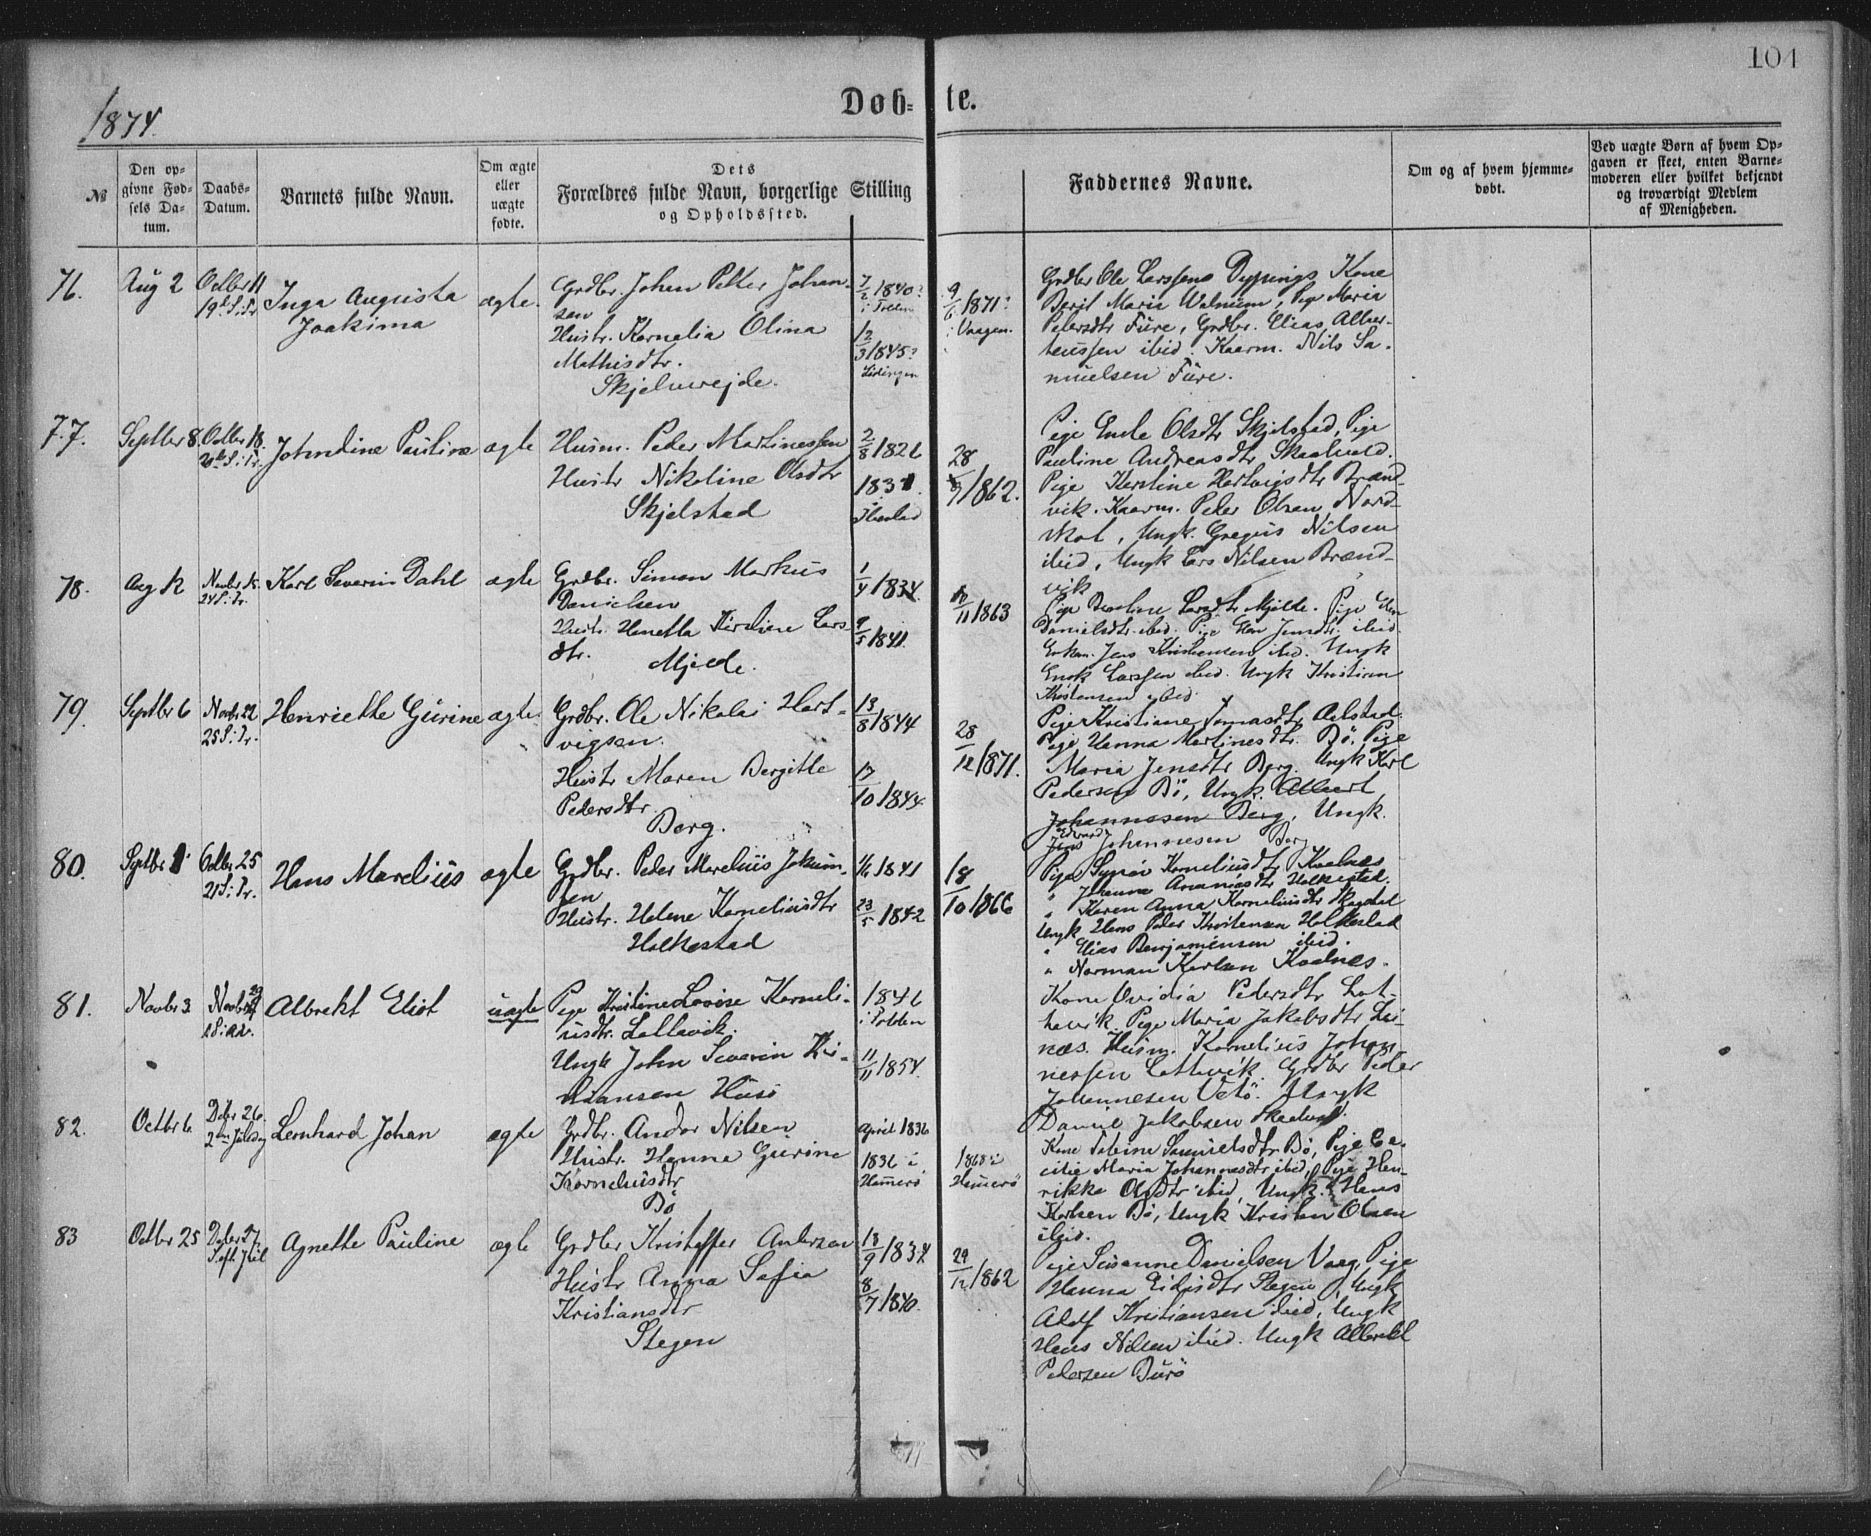 104
1874.
Døb-
te.
№
Den op-
givne Fød-
sels Da-
tum.
Daabs-
Datum.
Barnets fulde Navn.
Om ægte
eller
uægte
fødte.
Dets
Forældres fulde Navn, borgerlige Stilling
og Opholdssted.
Faddernes Navne.
Om og af hvem hjemme-
døbt.
Ved uægte Børn af hvem Op-
gaven er skeet, enten Barne-
moderen eller hvilket bekjendt
og troværdigt Medlem
af Menigheden.
76.
Aug 2
Octber 11
19de S. Tr
Inga Augusta
Joakima
ægte.
Grdbr. Johan Petter Johan-
sen
Hustr. Kornelia Olina
Mathisdtr.
Skjelverejde.
7/2 1840?
12/3 1845?
Lødingen
9/6 1871?
i Vaagen.
Grdbr Ole Larssens Dyppings Kone
Berit Maria Walnum, Pige Maria
Pedersdtr Füre, Grdbr. Elias Alber-
teussen ibid. Kaarm. Nils Sa-
muelsen Füre.
77.
Septber 8.
Octber 18.
20de S. Tr.
Johndine Pauline
ægte
Husm. Peder Martinessen
Hustr Nikoline Olsdtr
Skjelstad
2/8 1826
1831.
28/9 1862.
Pige Emle Olsdtr Skjelstad, Pige
Pauline Andreasdtr Skaalvold.
Pige Kerstine Hertvigsdtr Brænd-
vik. Kaarm. Peder Olsen Nord-
skot, Ungk. Gregus Nilsen
ibid, Ungk Lars Nilsen Brænd-
vik
78.
Aug 12
Novbr 15.
24 S. Tr.
Karl Severin Dahl
ægte
Grdbr. Simon Markus
Danielsen
Hustr. Henetta Kirstine Lars
dtr.
Mjelde.
1/4 1834.
9/5 1841.
10/11 1863
Pige Larsdtr Mjelde. Pige
Danielsdtr. ibid. Pige Jensdtr. ibid.
Jens Kristiansen ibid. Ungk
Enok Larssen ibid. Ungk Kristian
Kristensen ibid.
79.
Septbr 6
Novbr. 22
25 S. Tr.
Henriette Gürine
ægte.
Grdbr. Ole Nikolai Hart-
vigsen.
Hustr Maren Bergitte
Pedersdtr.
Berg.
13/8 1844
17/10 1844.
28/12 1871.
Pige Kristiane Tomasdtr Aalstad.
Pige Hanna Martinesdtr. Bø, Pige
Maria Jensdtr Berg. Ungk Karl
Pedersen Bø, Ungk. Albert
Johannesen Berg, Ungk.
Edvard
Jens Johannesen Berg
80.
Septbr 1
Octbr 25
21 S. Tr.
Hans Marelius
ægte
Grdbr. Peder Marelius Jakim-
sen
Hustr. Helene Korneliusdtr
Holkestad
1/6 1841
23/5 1842
18/10 1866
Pige Synøv Korneliusdtr Kvalnes
" Johanna Ananiasdtr Holkestad.
" Karen Anna Korneliusdtr Skagstad
Ungk Hans Peder Kristensen Holkestad
" Elias Benjaminsen ibid.
" Norman Karlsen Kvalnes.
81.
Novbr 3
Novbr 29
1 S. i Adv.
Albrekt Eliot
uægte
Pige Kristine Lovise Korneli-
usdtr. Lattavik.
Ungk John Severin Kri-
stiansen Husø
1846
i Folden
11/11 1854.
Kone Ovidia Pedersdtr Lat-
tavik. Pige Maria Jakobsdtr Lei-
næs. Husm. Kornelius Johan-
nessen Lattavik. Grdbr Peder
Johannesen Vetø. Ungk
Daniel Jakobsen Skaalvol.
82.
Octbr 6
Dcbr 26
2den Juledg
Lernhard Johan
ægte
Grdbr. Andor Nilsen
Hustr. Hanna Gürine
Korneliusdtr
Bø
April 1836
1836 i
Hamerø
1868 i
Hamerø
Kone Samuelsdtr. Bø, Pige Ce-
cilie Maria Johannesdtr ibid, Pige Hen-
rikke Olsdtr ibid, Ungk. Hans
Karlsen Bø, Ungk Kristen Olsen
ibid.
83
Octbr 25
Dcbr 27
S. eft. Jül
Agnethe Pauline
ægte
Grdbr Kristoffer Andersen
Hustr Anna Sofia
Kristiansdtr
Stegen
13/9 1834
8/7 1840.
29/12 1862
Pige Susanne Danielsen Vaag, Pige
Hanna Eidisdtr Stegen, Ungk
Adolf Kristiansen ibid, Ungk
Hans Nilsen ibid. Ungk Albrekt
Pedersen Bürø